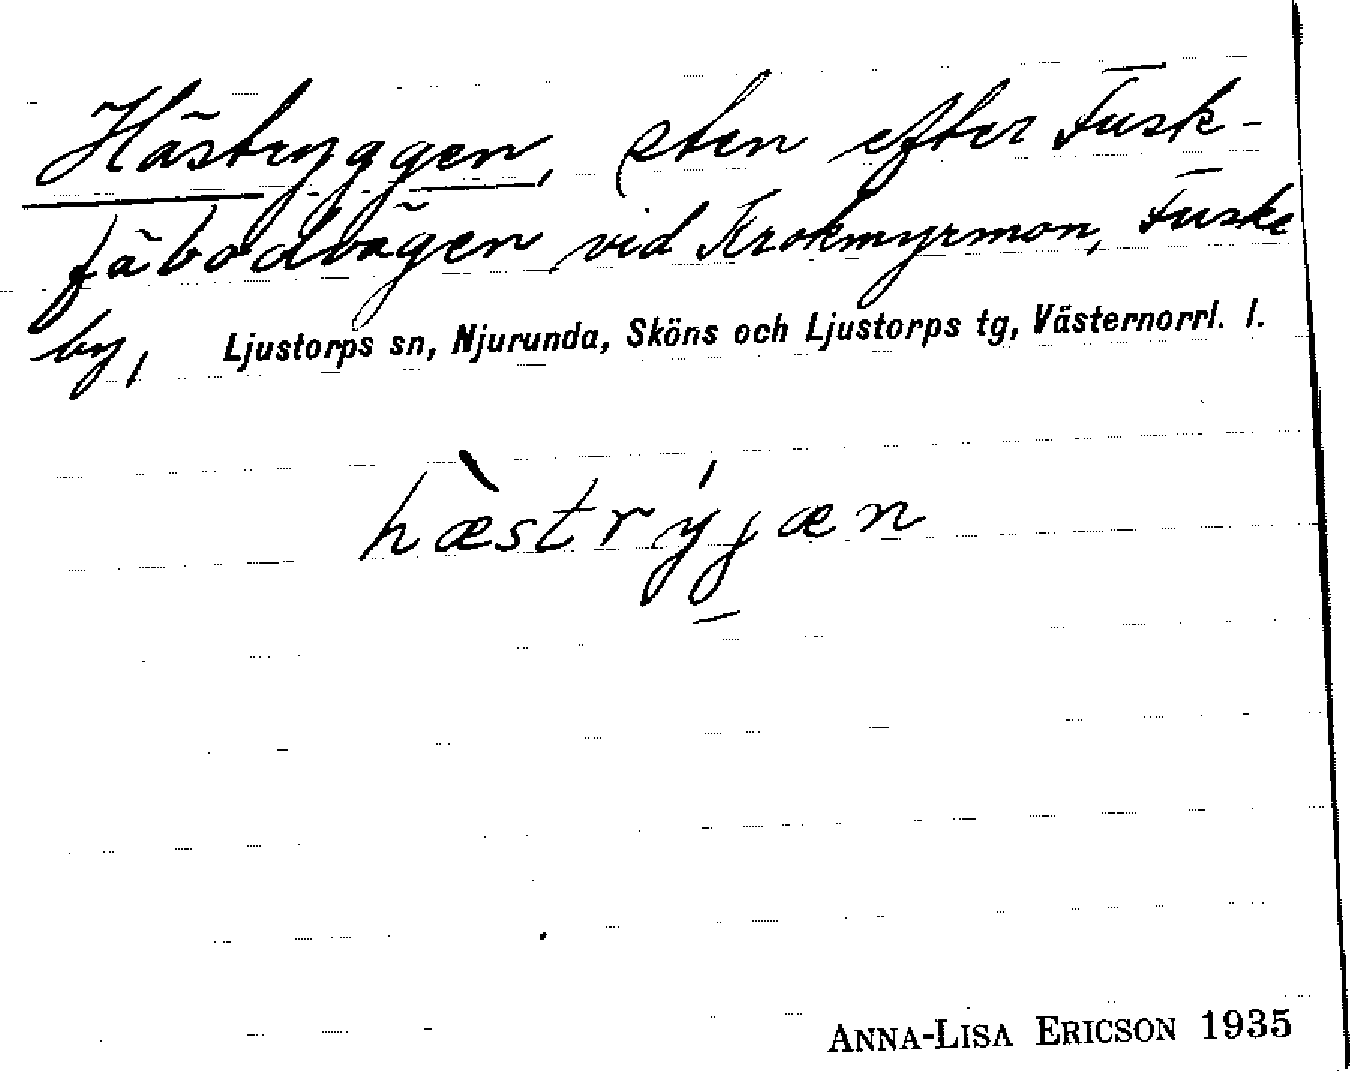 Hästryggen, sten efter Fusk-
fäbodvägen vid Krokmyrmon, Fuske
by, Ljustorps sn, Njurunda, Sköns och Ljustorps tg, Västernorrl. l.
hæ̀strýjæn
ANNA-LISA ERICSON 1935